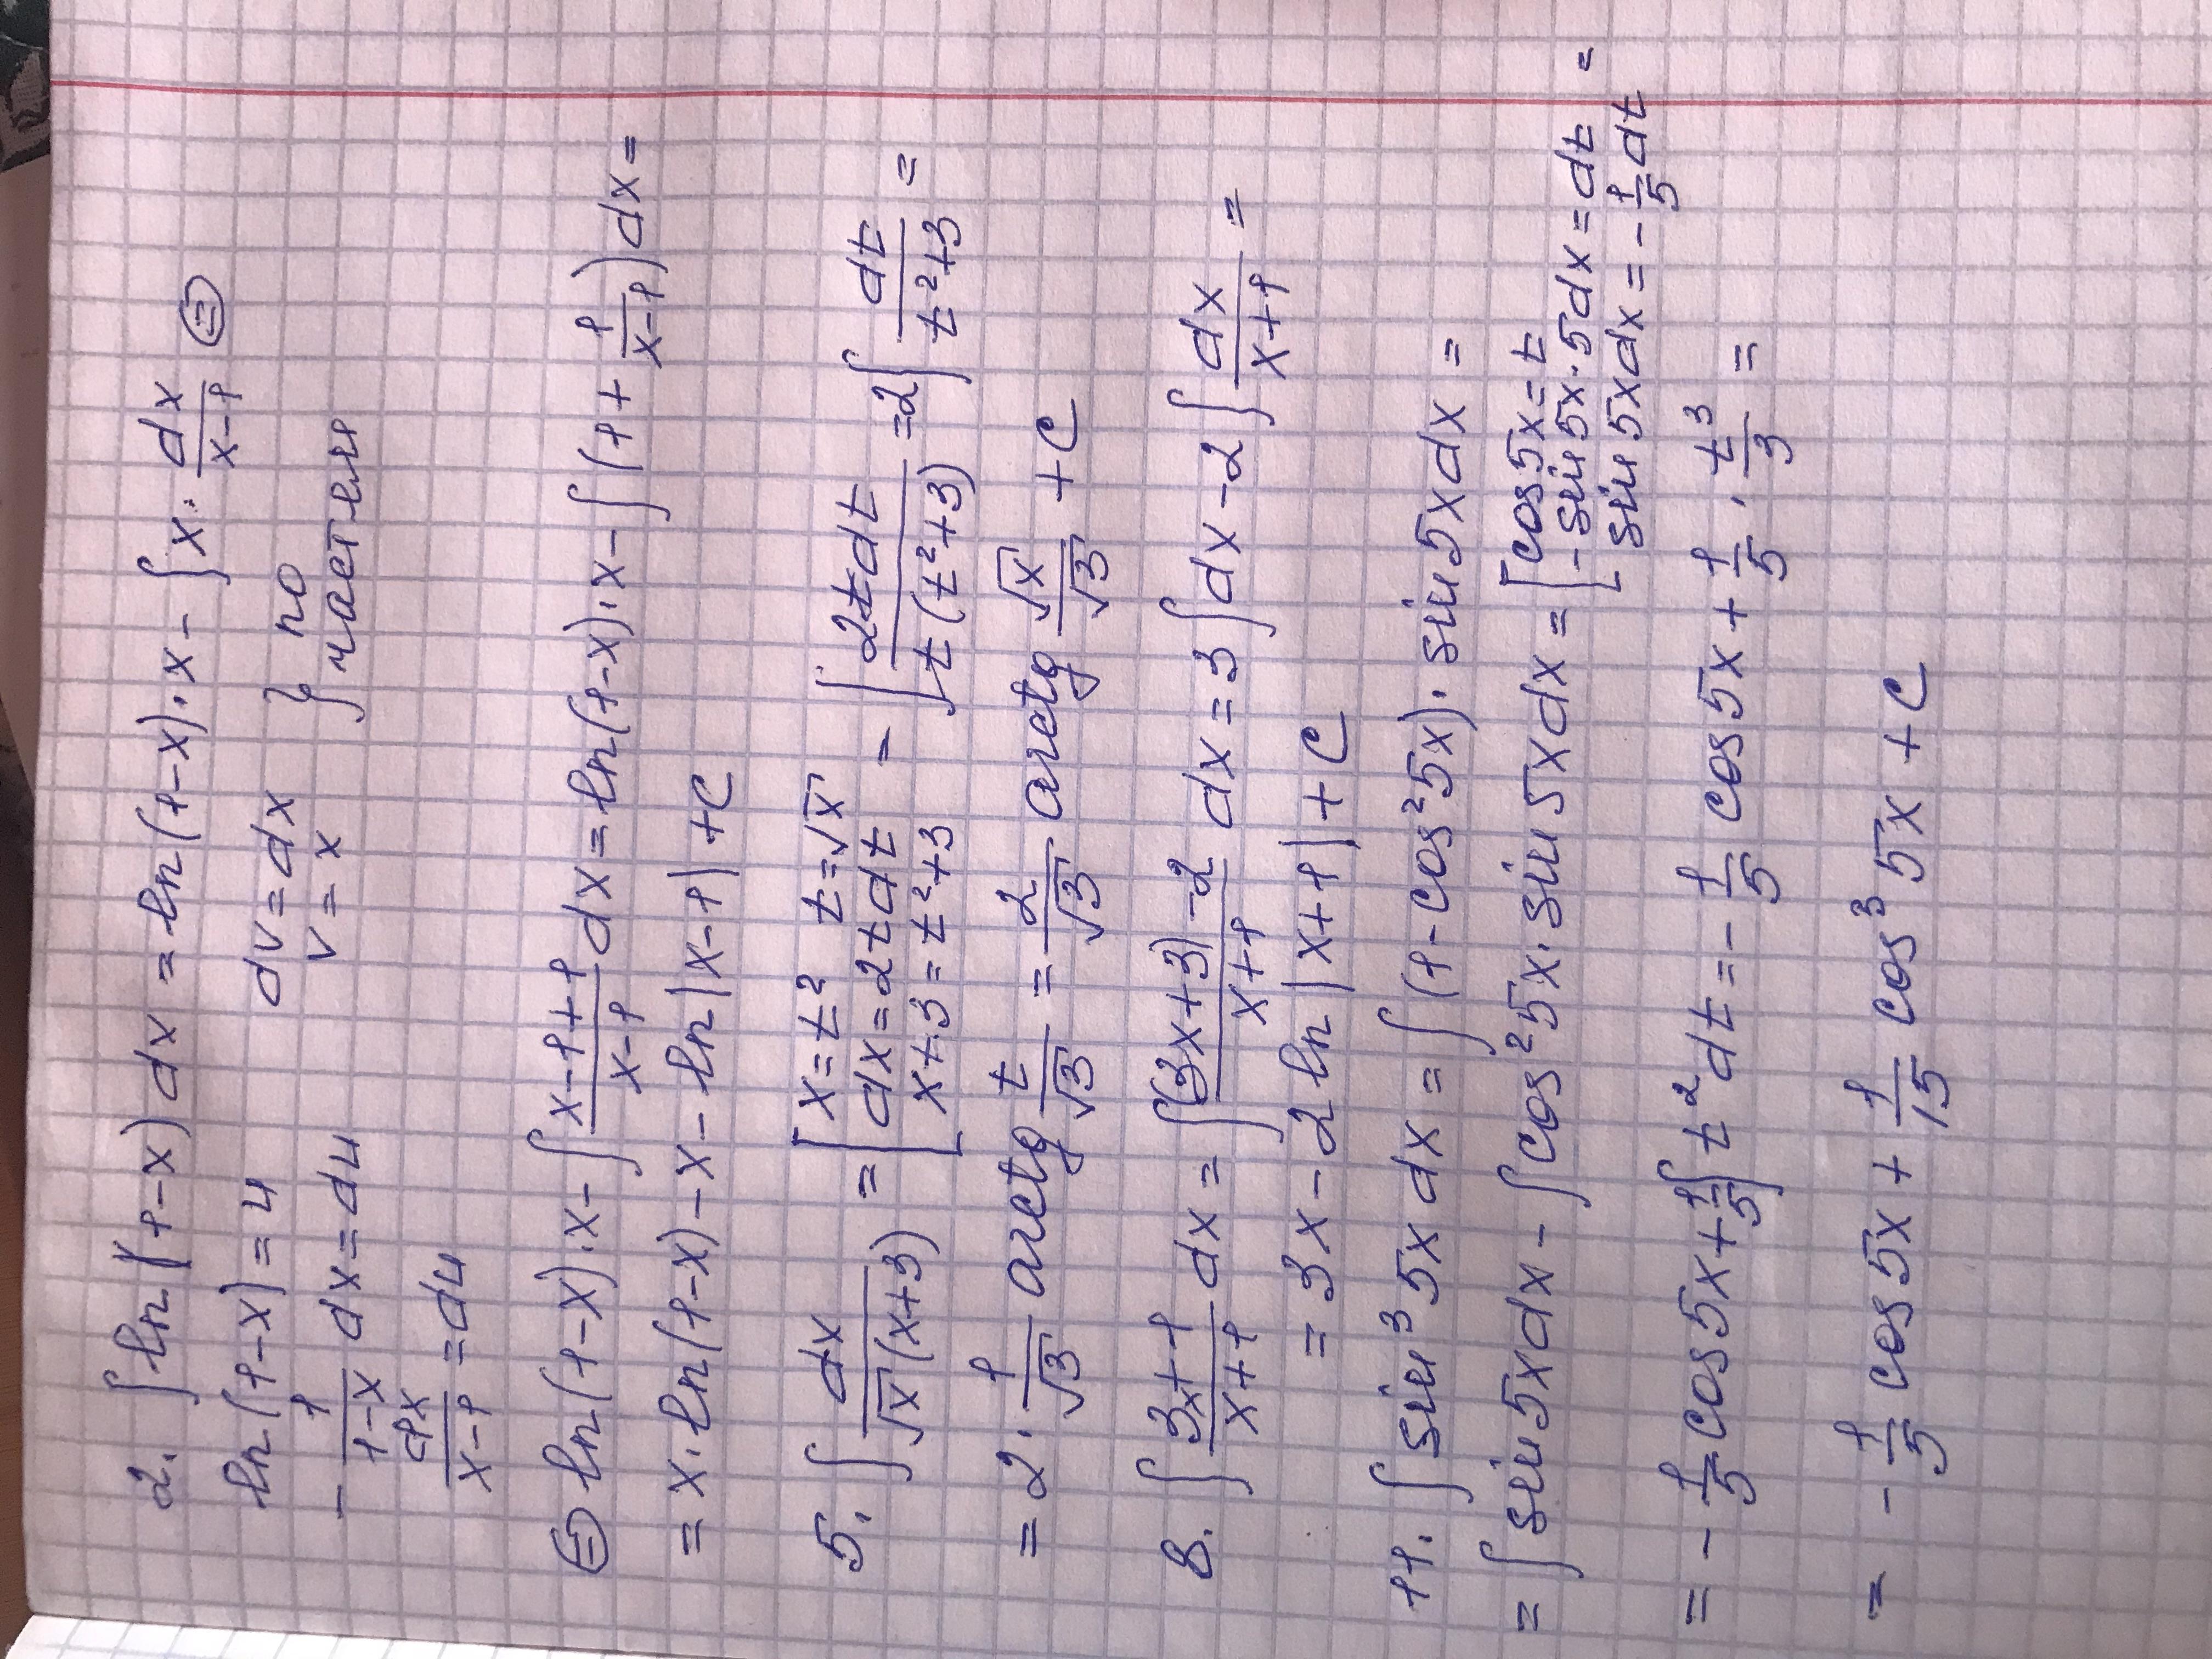 2. ∫ ln(1-x)dx = ln(1-x)·x - ∫ x· dx/(x-1) ⊜
ln(1-x) = u    dv = dx } по
- 1/(1-x) dx = du    v = x    частям
dx/(x-1) = du
⊜ ln(1-x)·x - ∫ (x-1+1)/(x-1) dx = ln(1-x)·x - ∫ (1 + 1/(x-1))dx =
= x·ln(1-x) - x - ln|x-1| + C
5. ∫ dx/(√x(x+3)) = [x = t²  t = √x
dx = 2tdt
x+3 = t²+3] = ∫ 2tdt/(t(t²+3)) = 2∫ dt/(t²+3) =
= 2· 1/√3 arctg t/√3 = 2/√3 arctg √x/√3 + C
8. ∫ (3x+1)/(x+1) dx = ∫ ((3x+3)-2)/(x+1) dx = 3∫dx - 2∫ dx/(x+1) =
= 3x - 2ln|x+1| + C
11. ∫ sin³5x dx = ∫ (1-cos²5x)·sin5xdx =
= ∫ sin5xdx - ∫ cos²5x·sin5xdx = [cos5x = t
-sin5x·5dx = dt
sin5xdx = -1/5 dt =
= -1/5 cos5x + 1/5 ∫ t²dt = -1/5 cos5x + 1/5 · t³/3 =
= -1/5 cos5x + 1/15 cos³5x + C